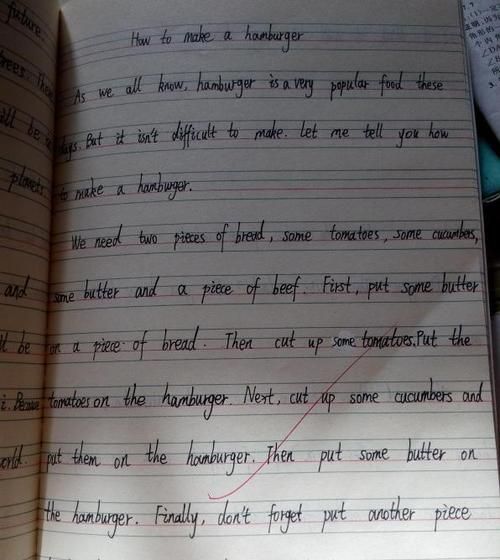 How to make a hamburger
As we all know, hamburger is a very popular food these
days. But it isn't difficult to make. Let me tell you how
to make a hamburger.
We need two pieces of bread, some tomatoes, some cucumbers,
some butter and a piece of beef. First, put some butter
on a piece of bread. Then cut up some tomatoes. Put the
tomatoes on the hamburger. Next, cut up some cucumbers and
put them on the hamburger. Then put some butter on
the hamburger. Finally, don't forget put another piece
future
trees. There
will be
planets
and
be
i. Because
world.